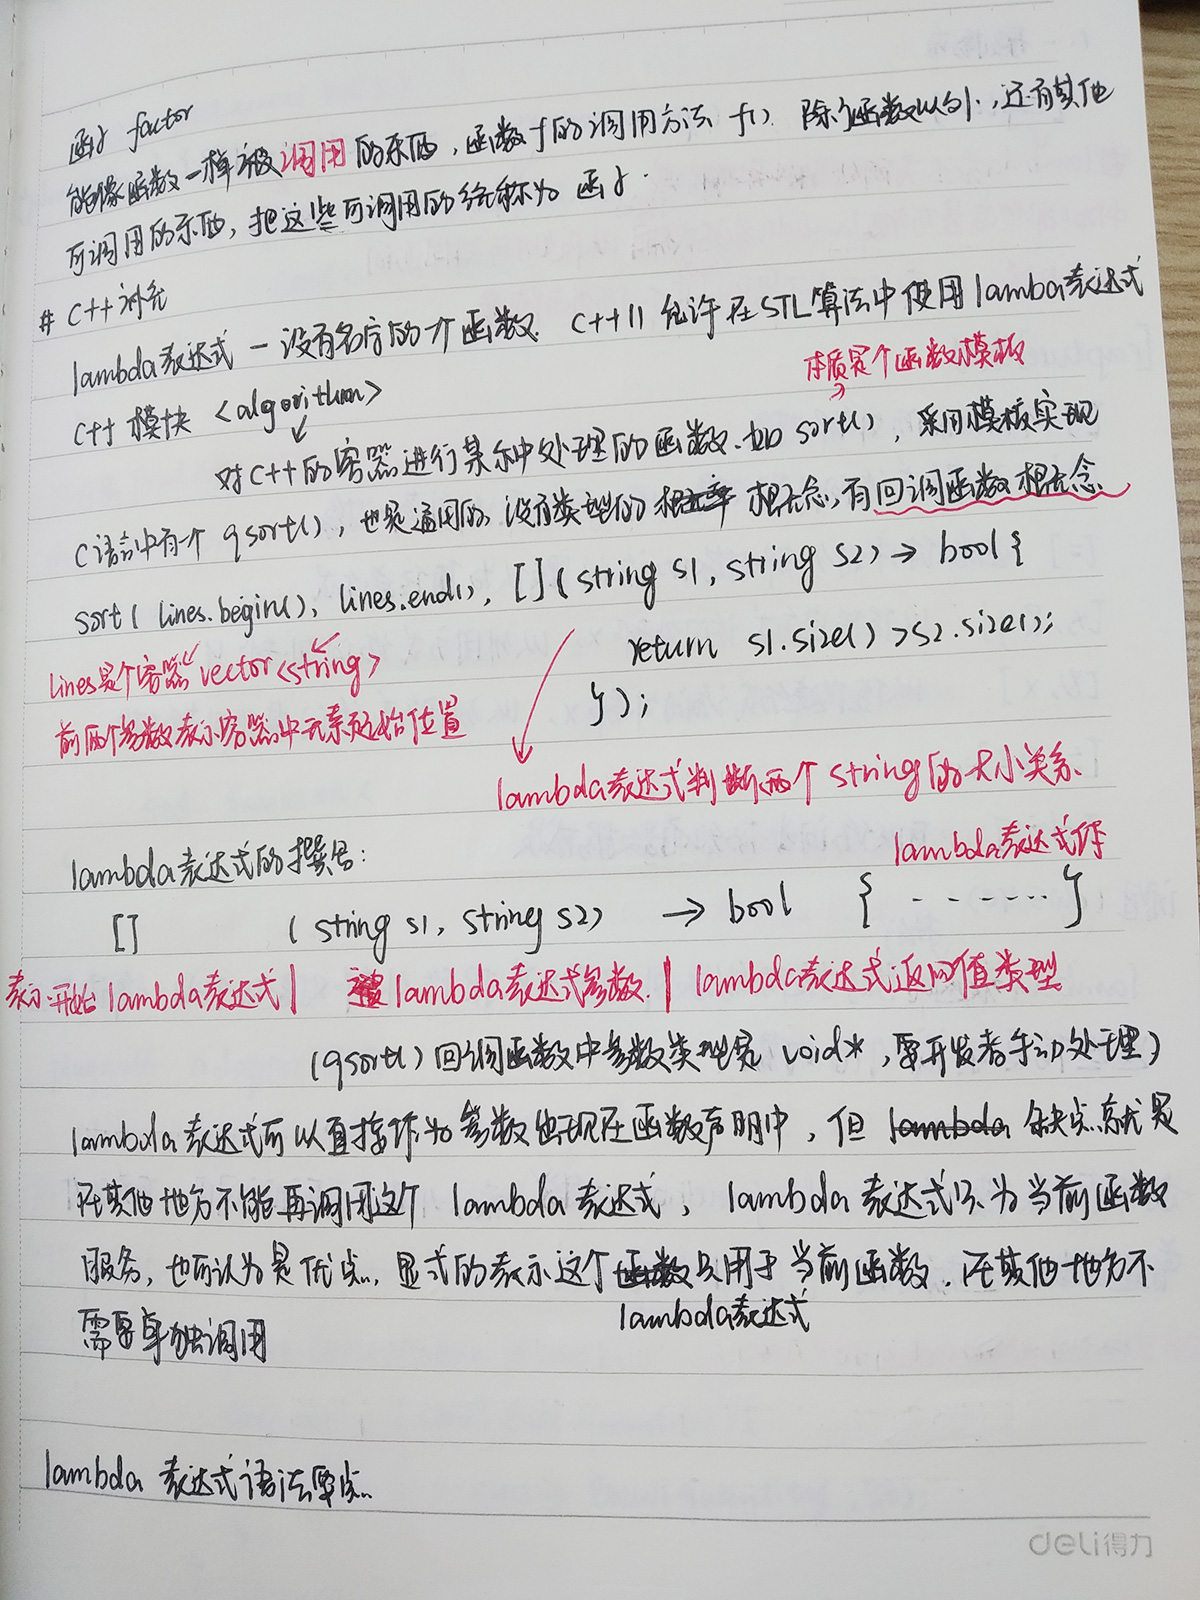 函子 factor
能像函数一样被调用的东西,函数f的调用方法 f(). 除了函数以外,还有其他
可调用的东西,把这些可调用的统称为 函子.
# C++补充
lambda表达式 — 没有名字的一个函数. C++11 允许在STL算法中使用lamba表达式
本质是个函数模板
C++ 模块 <algorithm>
对C++的容器进行某种处理的函数.如 sort(), 采用模板实现
C语言中有一个 qsort(), 也是通用的, 没有类型的 概念,有回调函数概念.
sort( lines.begin(), lines.end(), [](string s1, string s2) → bool {
return s1.size() > s2.size();
});
lines是个容器 vector<string>
前两个参数表示容器中元素起始位置
lambda表达式判断两个 string的大小关系.
lambda表达式的:
lambda表达式体
[] (string s1, string s2) → bool { ------- }
表示开始 lambda表达式 | lambda表达式参数. | lambda表达式返回值类型
(qsort()回调函数中参数类型是 void*, 要开发者手动处理)
lambda表达式可以直接作为参数出现在函数声明中, 但 lambda 缺点就是
在其他地方不能再调用这个 lambda表达式, lambda表达式只为当前函数
服务, 也可认为是优点, 显式的表示这个函数只用于当前函数. 在其他地方不
lambda表达式
需要单独调用
lambda 表达式语法要点.
deli得力